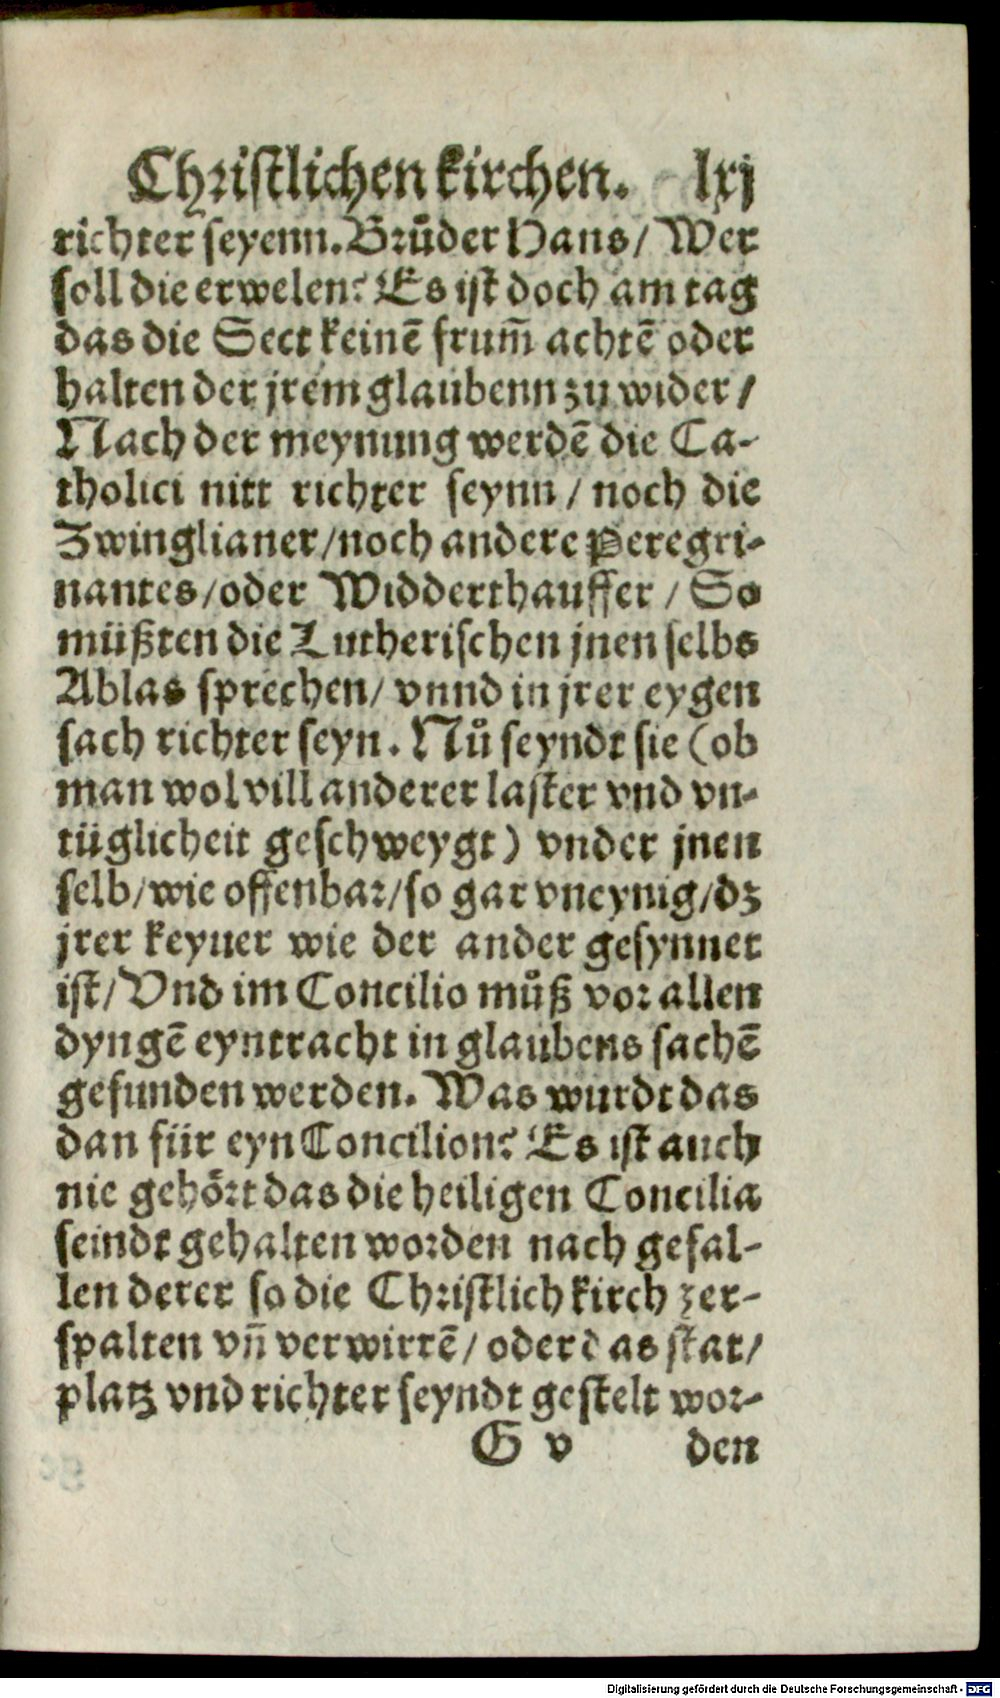 Christlichen kirchen. lxj
richter seyenn. Brůder Hans/ Wer
soll die erwelen? Es ist doch am tag
das die Sect keinē frum̄ achtē oder
halten der jrem glaubenn zu wider/
Nach der meynung werdē die Ca-
tholici nitt richter seynn/ noch die
Zwinglianer/noch andere Peregri-
nantes/oder Widderthauffer/ So
müßten die Lutherischen jnen selbs
Ablas sprechen/ vnnd in jrer eygen
sach richter seyn. Nů seyndt sie (ob
man wol vill anderer laster vnd vn-
tüglicheit geschweygt) vnder jnen
selb/wie offenbar/so gar vneynig/dz
jrer keyner wie der ander gesynnet
ist/ Vnd im Concilio můß vor allen
dyngē eyntracht in glaubens sachē
gefunden werden. Was wurdt das
dan für eyn Concilion? Es ist auch
nie gehört das die heiligen Concilia
seindt gehalten worden nach gefal-
len derer so die Christlich kirch zer-
spalten vn̄ verwirrē/ oder das stat/
platz vnd richter seyndt gestelt wor-
G v den
Digitalisierung gefördert durch die Deutsche Forschungsgemeinschaft - DFG